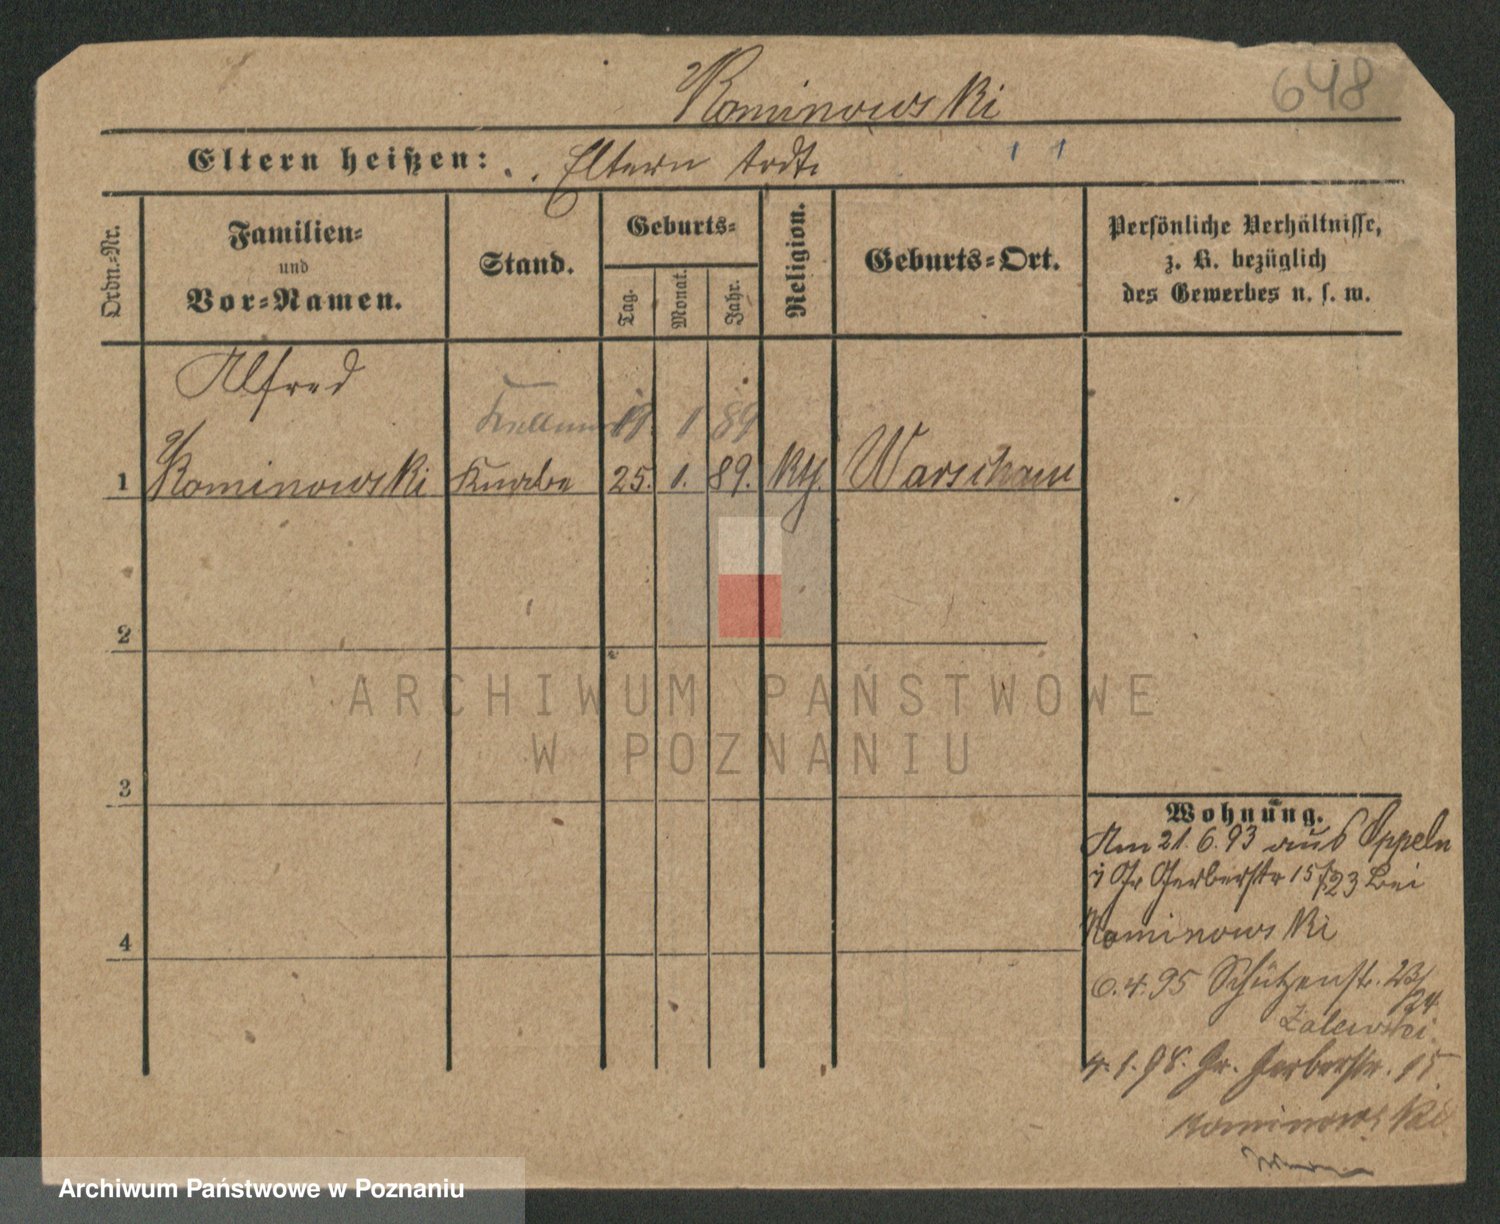 Kominowski
648
Eltern heißen: Eltern todt.
Ordn.-Nr.
Familien-
und
Vor-Namen.
Stand.
Geburts-
Tag.
Monat.
Jahr.
Religion.
Geburts-Ort.
Persönliche Verhältnisse,
z. B. bezüglich
des Gewerbes u. s. w.
Alfred
Kellner 19. 1 89
1 Kominowski Knabe 25. 1. 89. kth. Warschau
2
3
4
ARCHIWUM PAŃSTWOWE
W POZNANIU
Wohnung.
Am 21.6.93 aus Oppeln
Gr Gerberstr 15/23 bei
Kominowski
6.4.95 Schützenstr. 23/24
Zalewski.
4.1.98. Gr. Gerberstr. 15.
Kominowski
Archiwum Państwowe w Poznaniu